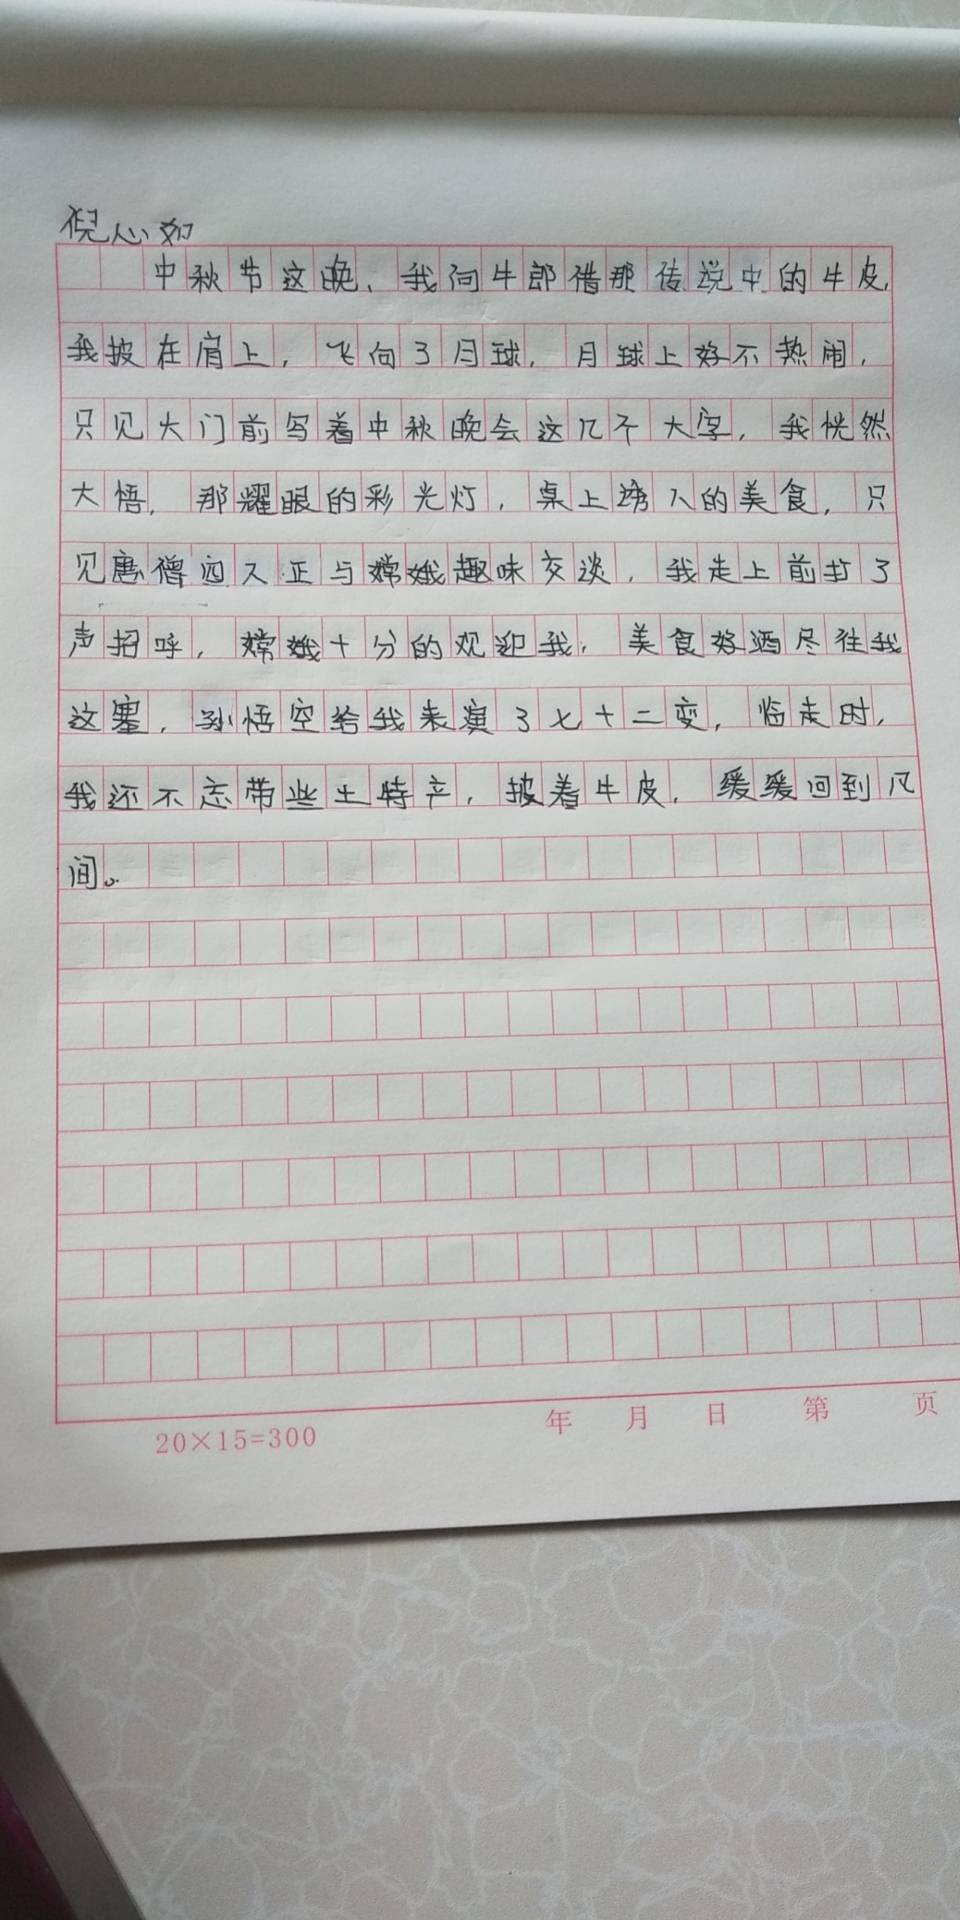 倪心如
中秋节这晚，我向牛郎借那传说中的牛皮，
我披在肩上，飞向了月球，月球上好不热闹，
只见大门前写着中秋晚会这几个大字，我恍然
大悟，那耀眼的彩光灯，桌上诱人的美食，只
见唐僧四人正与嫦娥趣味交谈，我走上前打了
声招呼，嫦娥十分的欢迎我，美食好酒尽往我
这塞，孙悟空给我表演了七十二变，临走时，
我还不忘带些土特产，披着牛皮，缓缓回到凡
间。
20×15=300 年 月 日 第 页